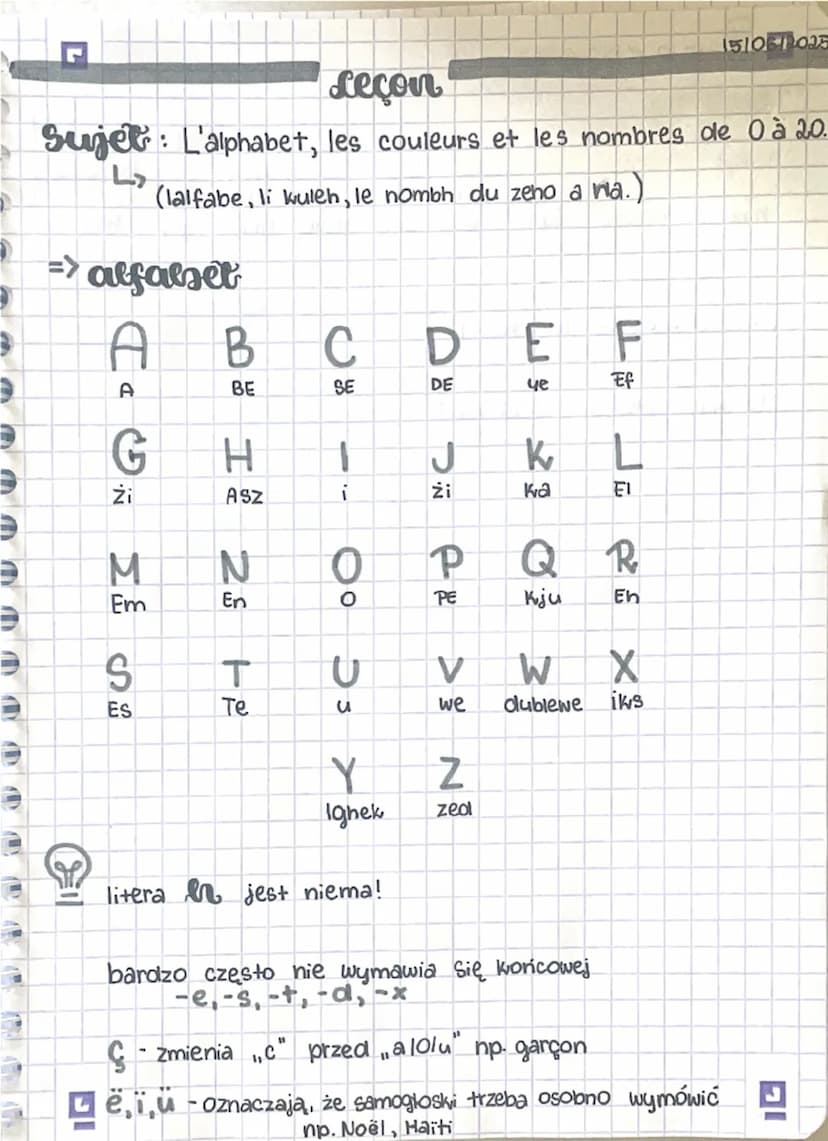 15/06/2025
Leçon
Sujet: L'alphabet, les couleurs et les nombres de 0 à 20.
↳ (lalfabe, li kuleh, le nombh du zeho a
=> alfabet
A B C D E F
A BE SE DE ye Ef
G H I J K L
żi ASZ i żi ka El
M N O P Q R
Em En O PE kju Eh
S T U V W X
ES Te u we dublewe iks
Y Z
Ighek zed
litera h jest niema!
bardzo często nie wymawia się końcowej
-e, -s, -t, -d, -x
ç - zmienia „c" przed „a/o/u" np. garçon
ë, ï, ü - oznaczają, że samogłoski trzeba osobno wymówić
np. Noël, Haiti